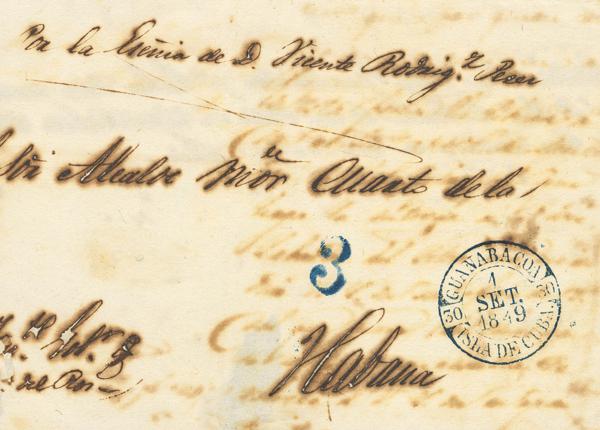 Por la Esñia de D. Vicente Rodrig.z Perez
Sõr Alcalde mõr Cuarto de la
3
GUANABACOA
1
SET.
1849
30
ISLA DE CUBA.
Habana